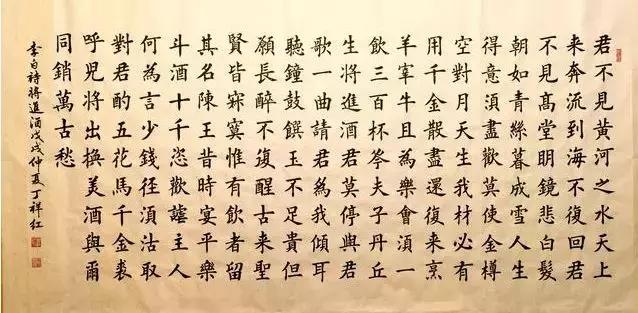 君不見黃河之水天上
来奔流到海不復回君
不見高堂明鏡悲白髮
朝如青絲暮成雪人生
得意須盡歡莫使金樽
空對月天生我材必有
用千金散盡還復来烹
羊宰牛且為樂會須一
飲三百杯岑夫子丹丘
生將進酒君莫停與君
歌一曲請君為我傾耳
聽鐘鼓饌玉不足貴但
願長醉不復醒古来聖
賢皆寂寞惟有飲者留
其名陳王昔時宴平樂
斗酒十千恣歡謔主人
何為言少錢徑須沽取
對君酌五花馬千金裘
呼兒將出換美酒與爾
同銷萬古愁
李白詩將進酒戊戌仲夏丁祥紅